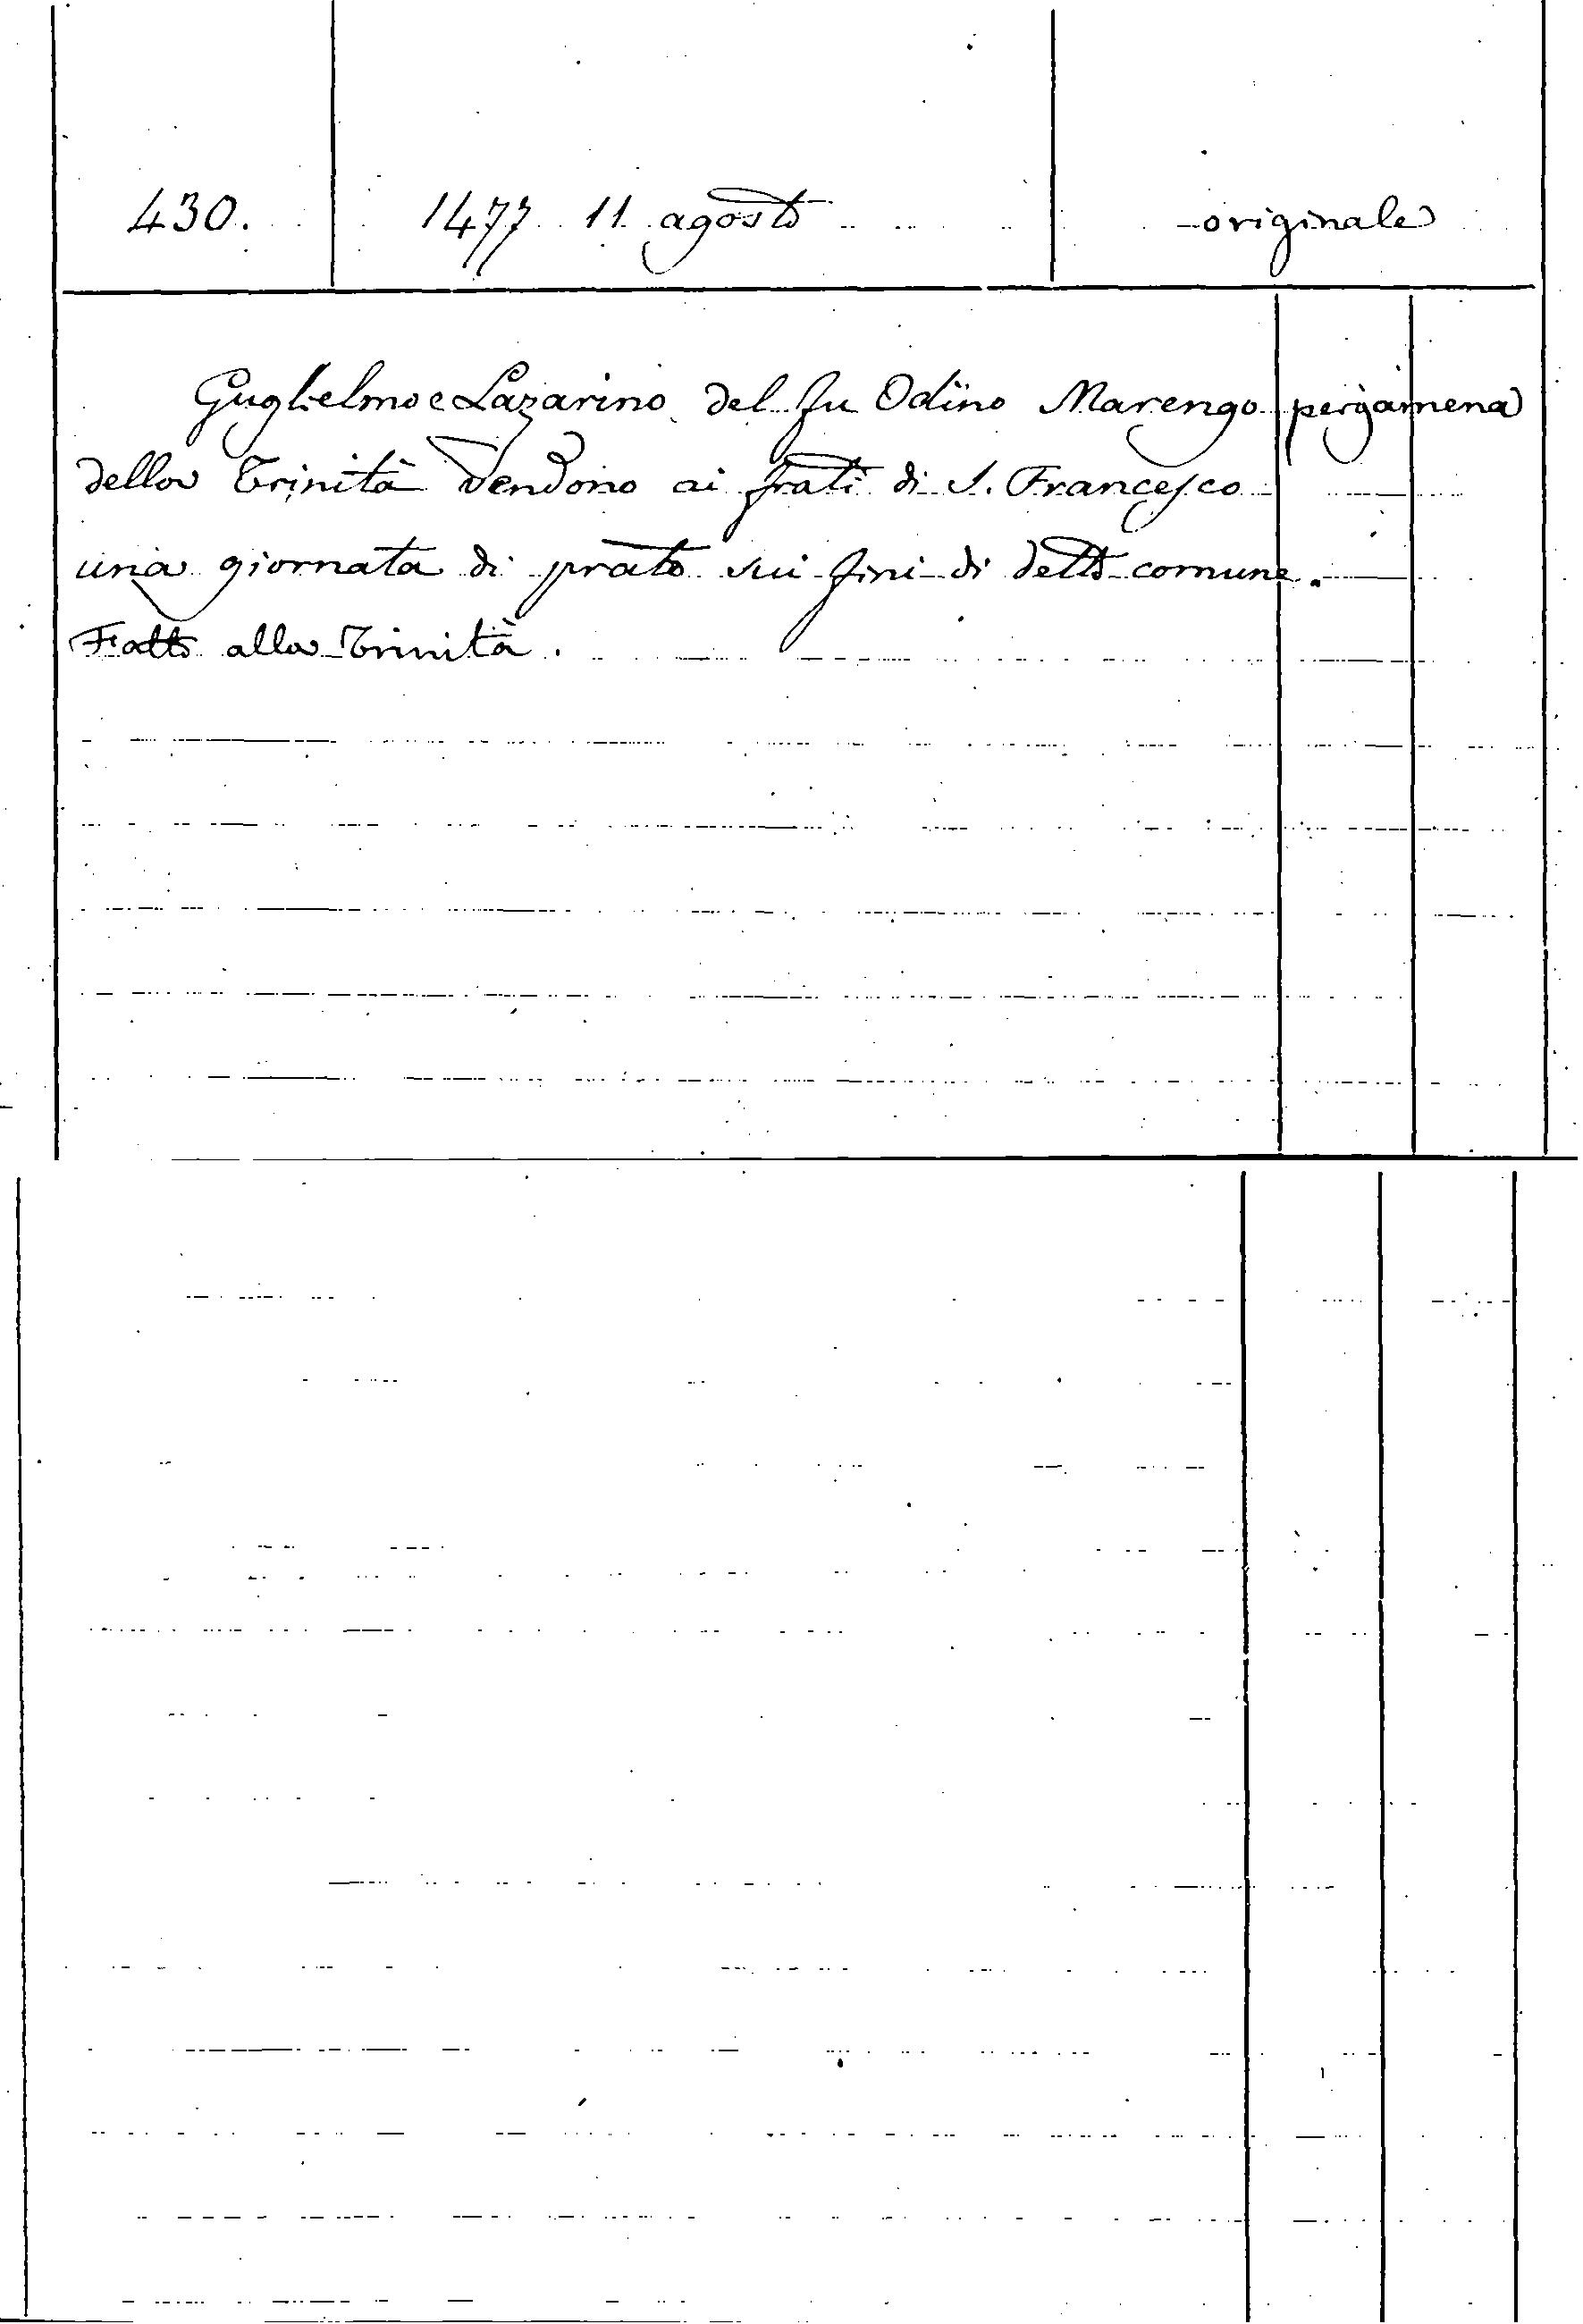 430. 1477 11 agosto originale
Guglielmo e Lazarino del fu Odino Marengo pergamena
della Trinità vendono ai frati di S. Francesco
una giornata di prato sui fini di detto comune.
Fatto alla Trinità.